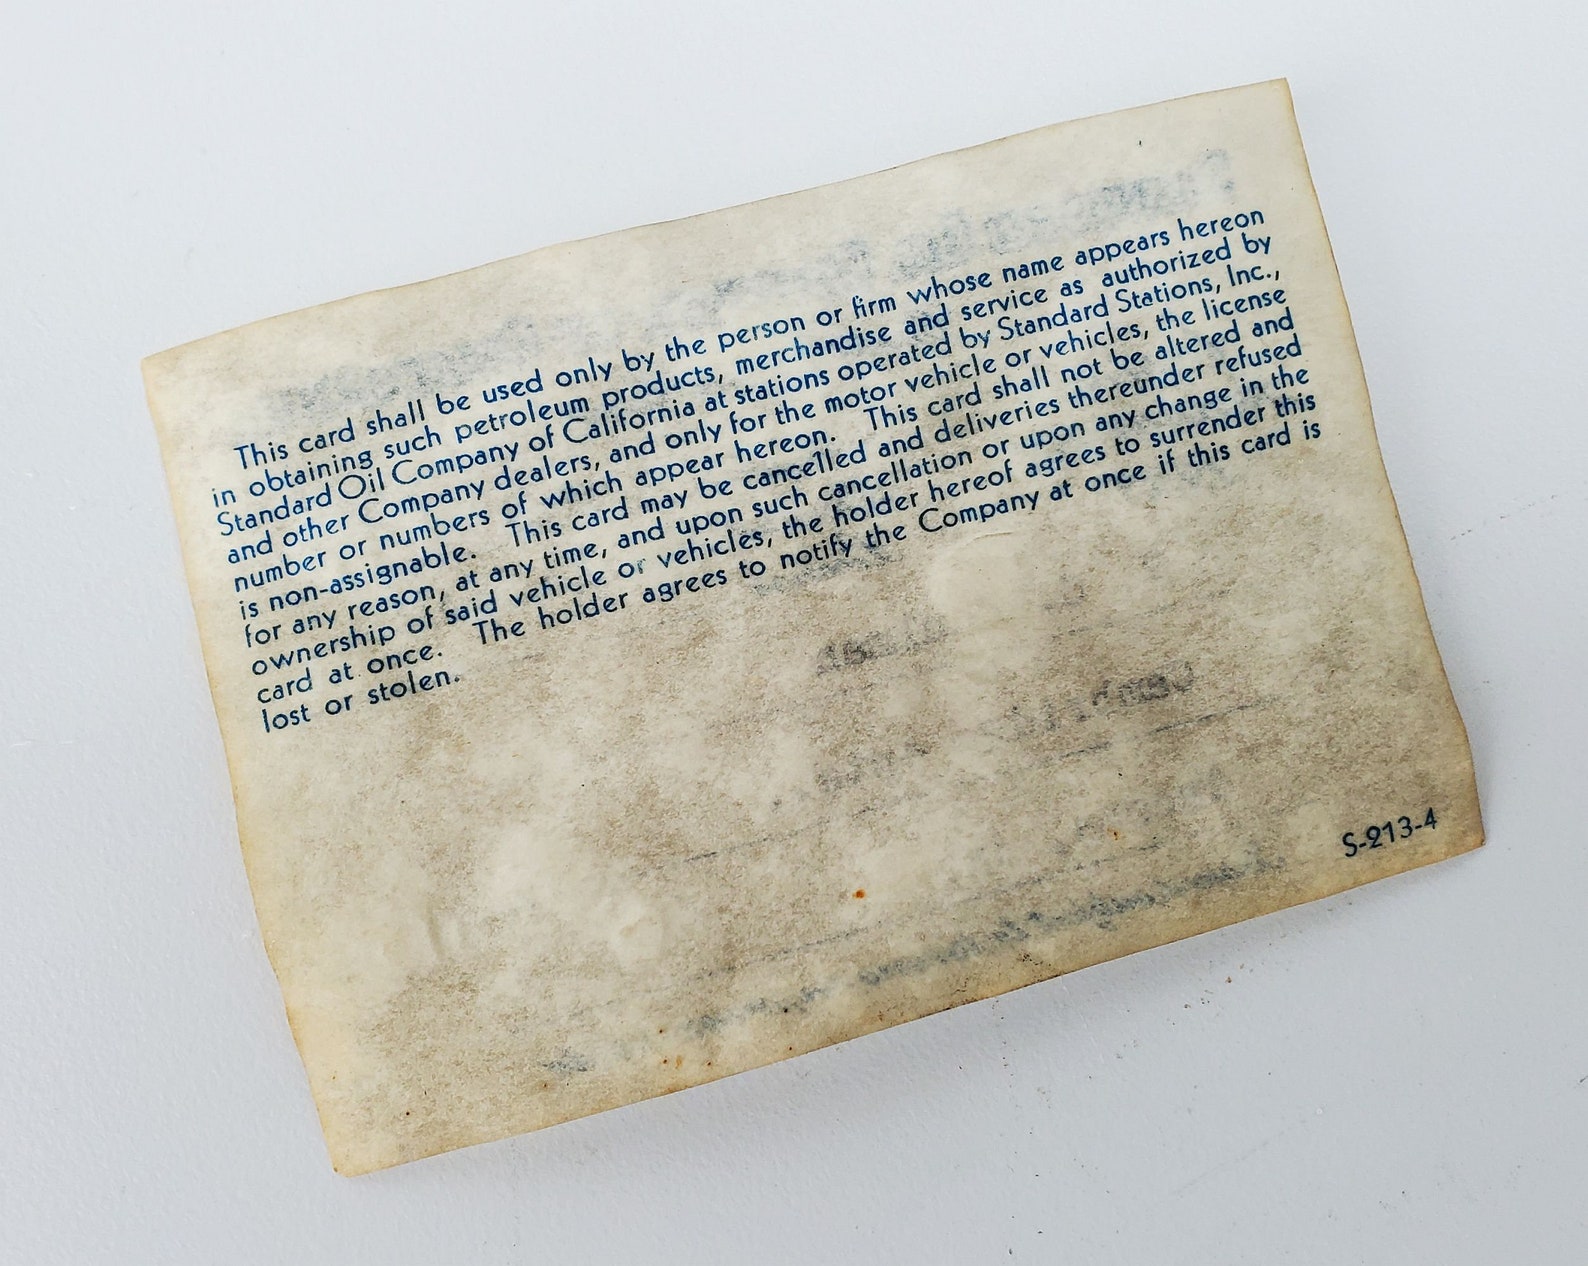 This card shall be used only by the person or firm whose name appears hereon
in obtaining such petroleum products, merchandise and service as authorized by
Standard Oil Company of California at stations operated by Standard Stations, Inc.,
and other Company dealers, and only for the motor vehicle or vehicles, the license
number or numbers of which appear hereon. This card shall not be altered and
is non-assignable. This card may be cancelled and deliveries thereunder refused
for any reason, at any time, and upon such cancellation or upon any change in the
ownership of said vehicle or vehicles, the holder hereof agrees to surrender this
card at once. The holder agrees to notify the Company at once if this card is
lost or stolen.
S-213-4